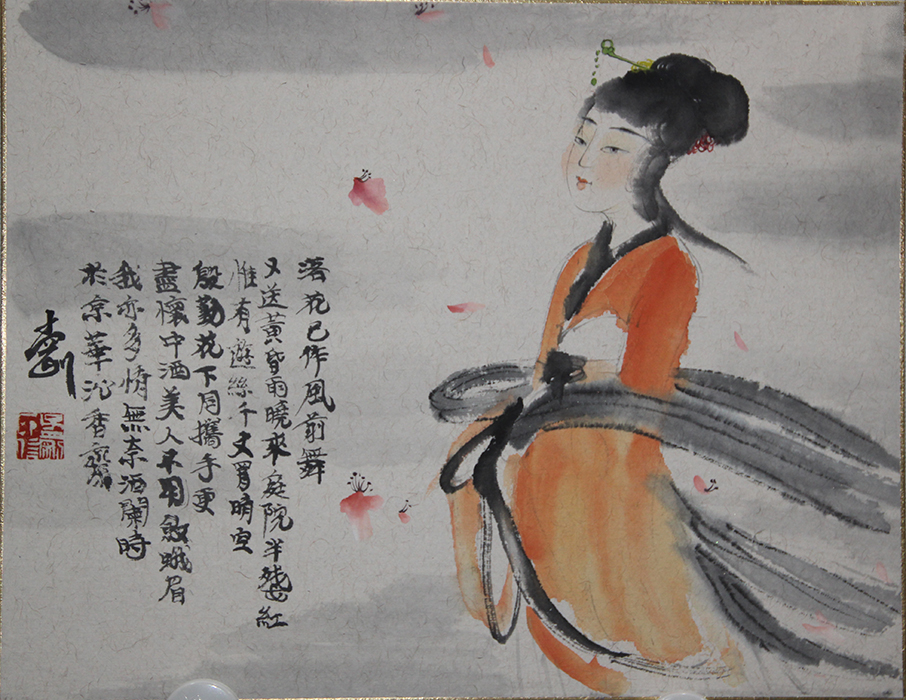 落花已作風前舞
又送黃昏雨曉來庭院半殘紅
惟有遊絲千丈罥晴空
殷勤花下同攜手更
盡懷中酒美人不用斂蛾眉
我亦多情無奈酒闌時
於京華沁香齋